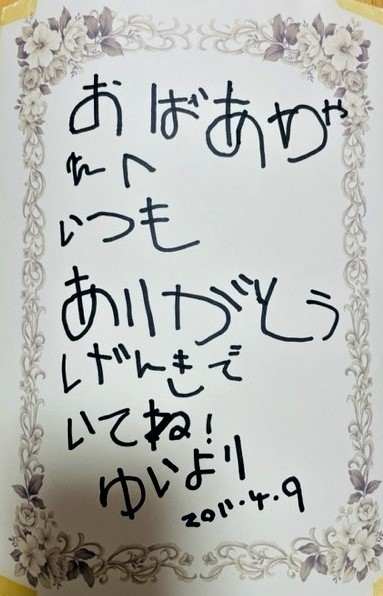 おばあちゃ
んへ
いつも
ありがとう
げんきで
いてね!
ゆいより
2011.4.9